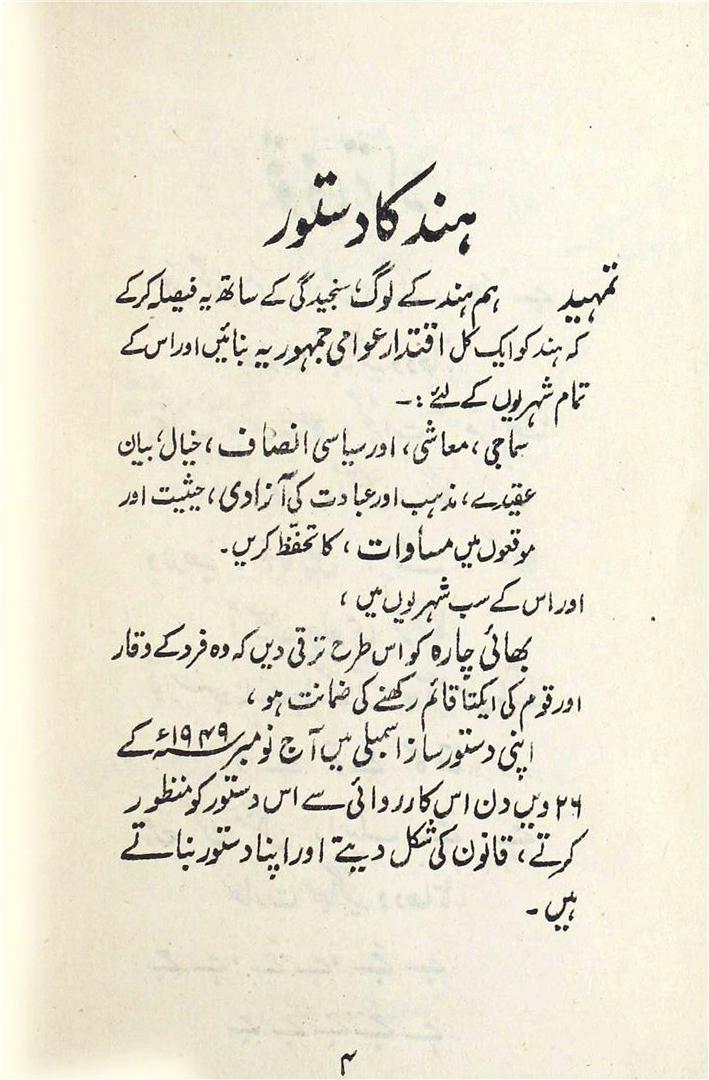 ہند کا دستور
تمہید ہم ہند کے لوگ، سنجیدگی کے ساتھ یہ فیصلہ کرکے
کہ ہند کو ایک کُل اقتدار عوامی جمہوریہ بنائیں اور اس کے
تمام شہریوں کے لئے :۔
سماجی، معاشی، اور سیاسی انصاف، خیال، بیان
عقیدے، مذہب اور عبادت کی آزادی، حیثیت اور
موقعوں میں مساوات، کا تحفّظ کریں۔
اور اس کے سب شہریوں میں،
بھائی چارہ کو اس طرح ترقی دیں کہ وہ فرد کے وقار
اور قوم کی ایکتا قائم رکھنے کی ضمانت ہو،
اپنی دستور ساز اسمبلی میں آج نومبر ۱۹۴۹ء کے
۲۶ ویں دن اس کارروائی سے اس دستور کو منظور
کرتے، قانون کی شکل دیتے اور اپنا دستور بناتے
ہیں۔
۴